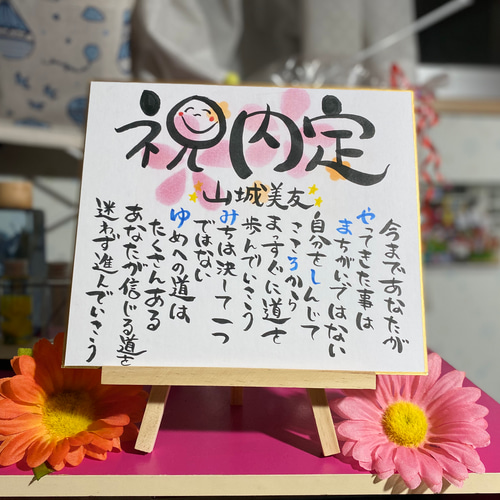 祝内定
山城美友
今まであなたが
やってきた事は
まちがいではない
自分をしんじて
こころから
まっすぐに道を
歩んでいこう
みちは決して一つ
ではない
ゆめへの道は
たくさんある
あなたが信じる道を
迷わず進んでいこう